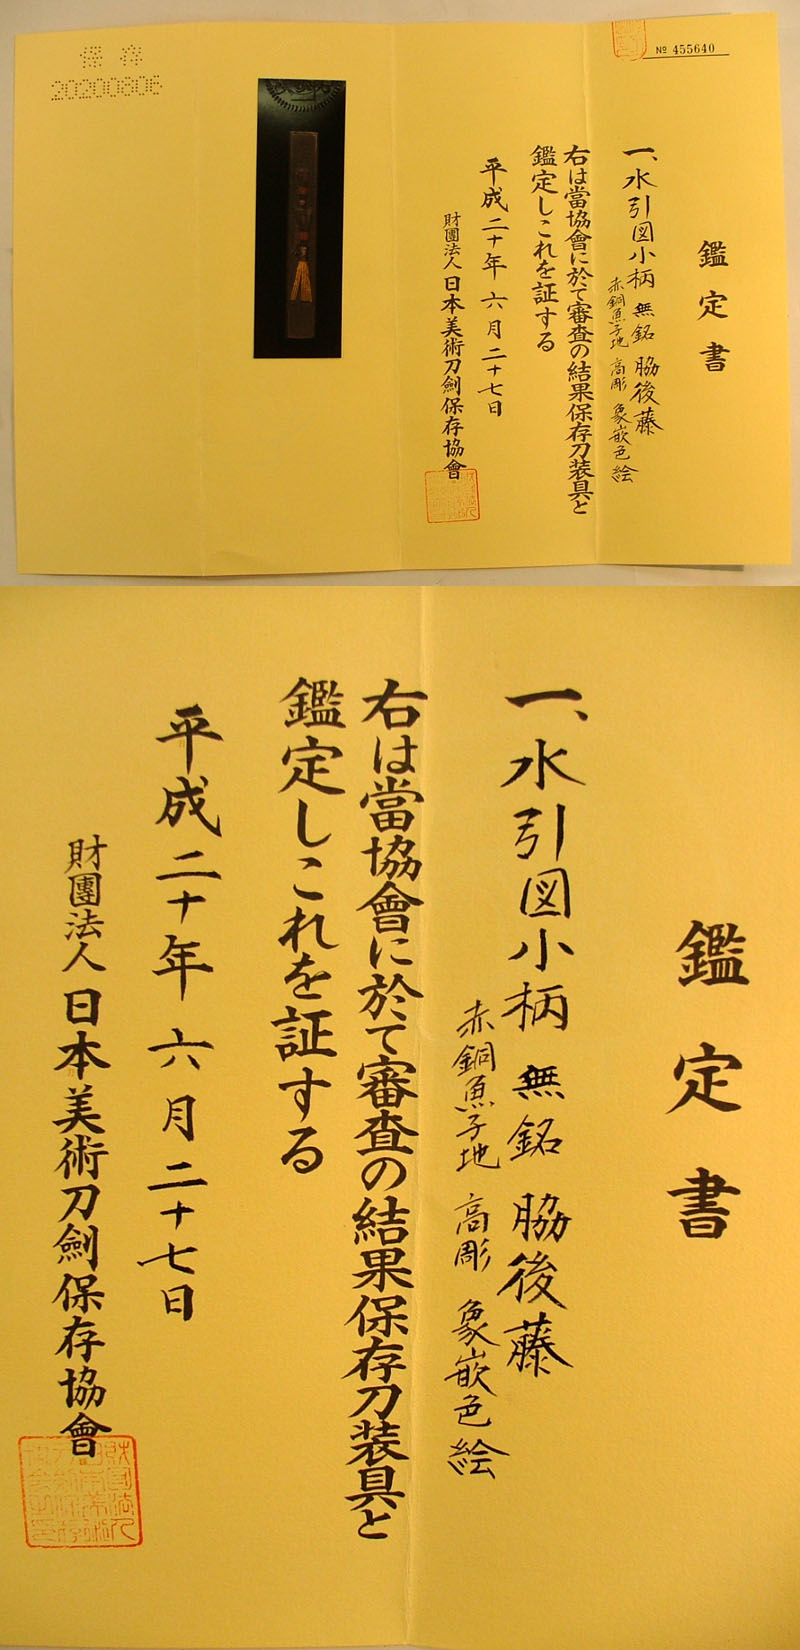 保存
20200806
№ 455640
鑑定書
一、水引図小柄 無銘 脇後藤
赤銅魚子地 高彫 象嵌色絵
右は當協會に於て審査の結果保存刀装具と
鑑定しこれを証する
平成二十年 六月 二十七日
財團法人 日本美術刀劍保存協會
鑑定書
一、水引図小柄 無銘 脇後藤
赤銅魚子地 高彫 象嵌色絵
右は當協會に於て審査の結果保存刀装具と
鑑定しこれを証する
平成二十年 六月 二十七日
財團法人 日本美術刀劍保存協會